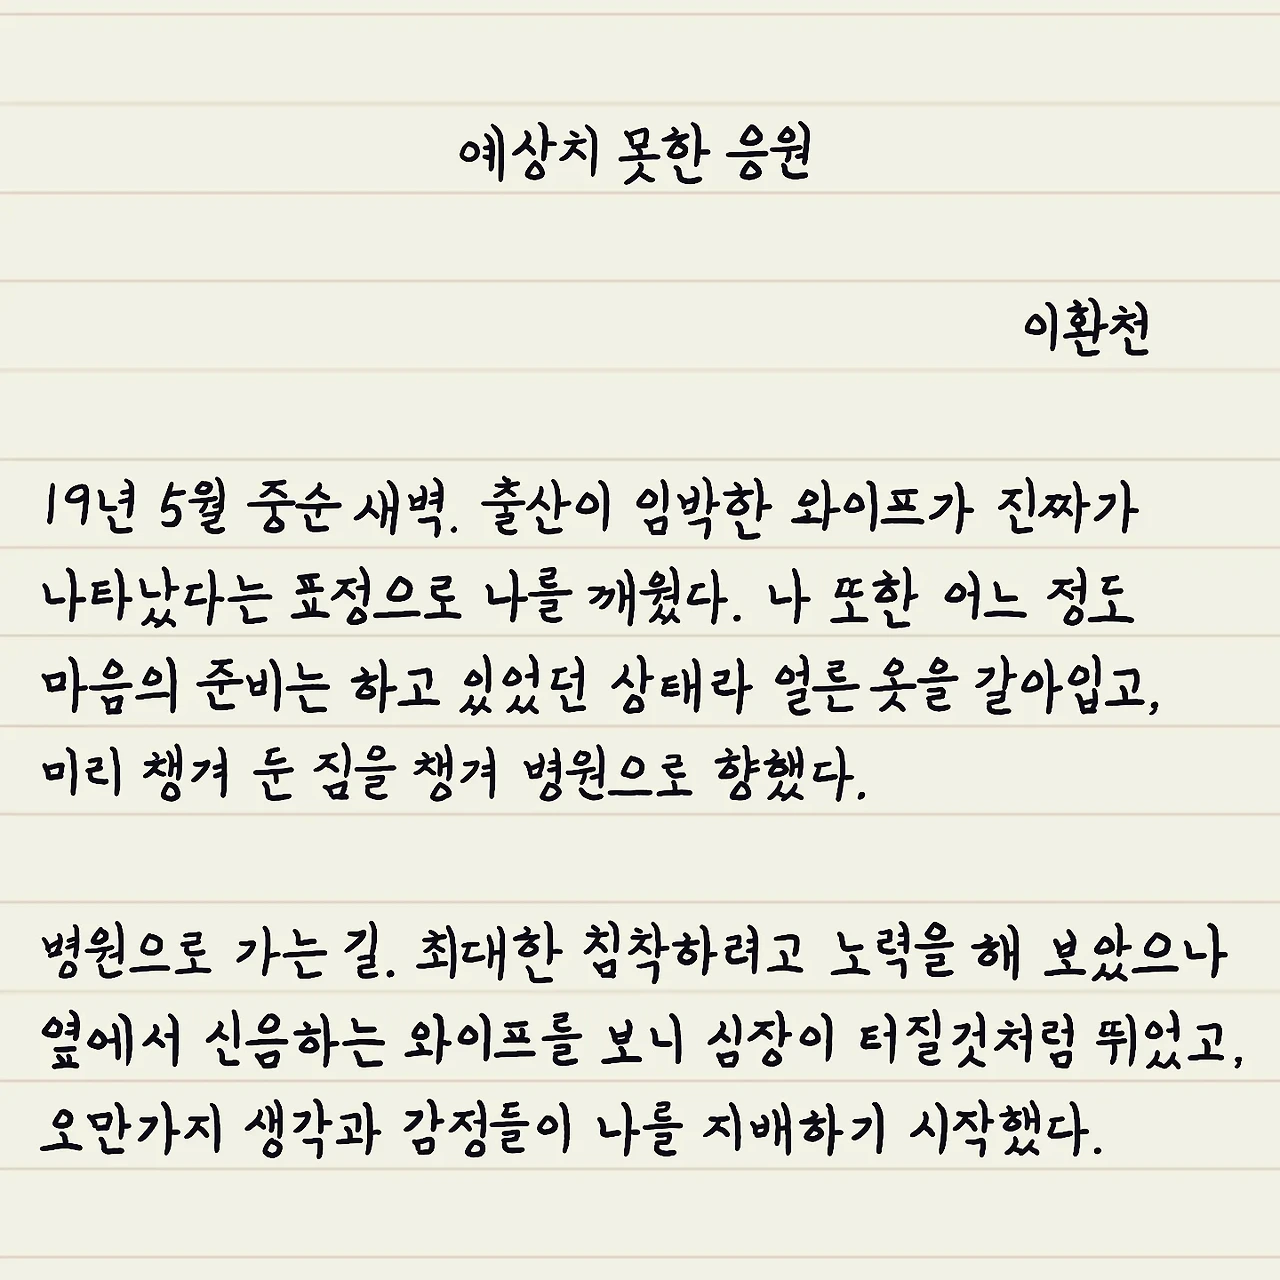 예상치 못한 응원
이환천
19년 5월 중순 새벽. 출산이 임박한 와이프가 진짜가
나타났다는 표정으로 나를 깨웠다. 나 또한 어느 정도
마음의 준비는 하고 있었던 상태라 얼른 옷을 갈아입고,
미리 챙겨 둔 짐을 챙겨 병원으로 향했다.
병원으로 가는 길. 최대한 침착하려고 노력을 해 보았으나
옆에서 신음하는 와이프를 보니 심장이 터질것처럼 뛰었고,
오만가지 생각과 감정들이 나를 지배하기 시작했다.